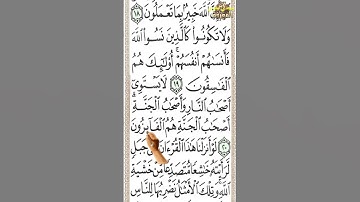 ٱللَّهَ خَبِيرٌۢ بِمَا تَعْمَلُونَ ١٨
وَلَا تَكُونُوا۟ كَٱلَّذِينَ نَسُوا۟ ٱللَّهَ
فَأَنسَىٰهُمْ أَنفُسَهُمْ ۚ أُو۟لَٰٓئِكَ هُمُ
ٱلْفَٰسِقُونَ ١٩ لَا يَسْتَوِىٓ
أَصْحَٰبُ ٱلنَّارِ وَأَصْحَٰبُ ٱلْجَنَّةِ ۚ
أَصْحَٰبُ ٱلْجَنَّةِ هُمُ ٱلْفَآئِزُونَ
٢٠ لَوْ أَنزَلْنَا هَٰذَا ٱلْقُرْءَانَ عَلَىٰ جَبَلٍ
لَّرَأَيْتَهُۥ خَٰشِعًا مُّتَصَدِّعًا مِّنْ خَشْيَةِ
ٱللَّهِ ۚ وَتِلْكَ ٱلْأَمْثَٰلُ نَضْرِبُهَا لِلنَّاسِ